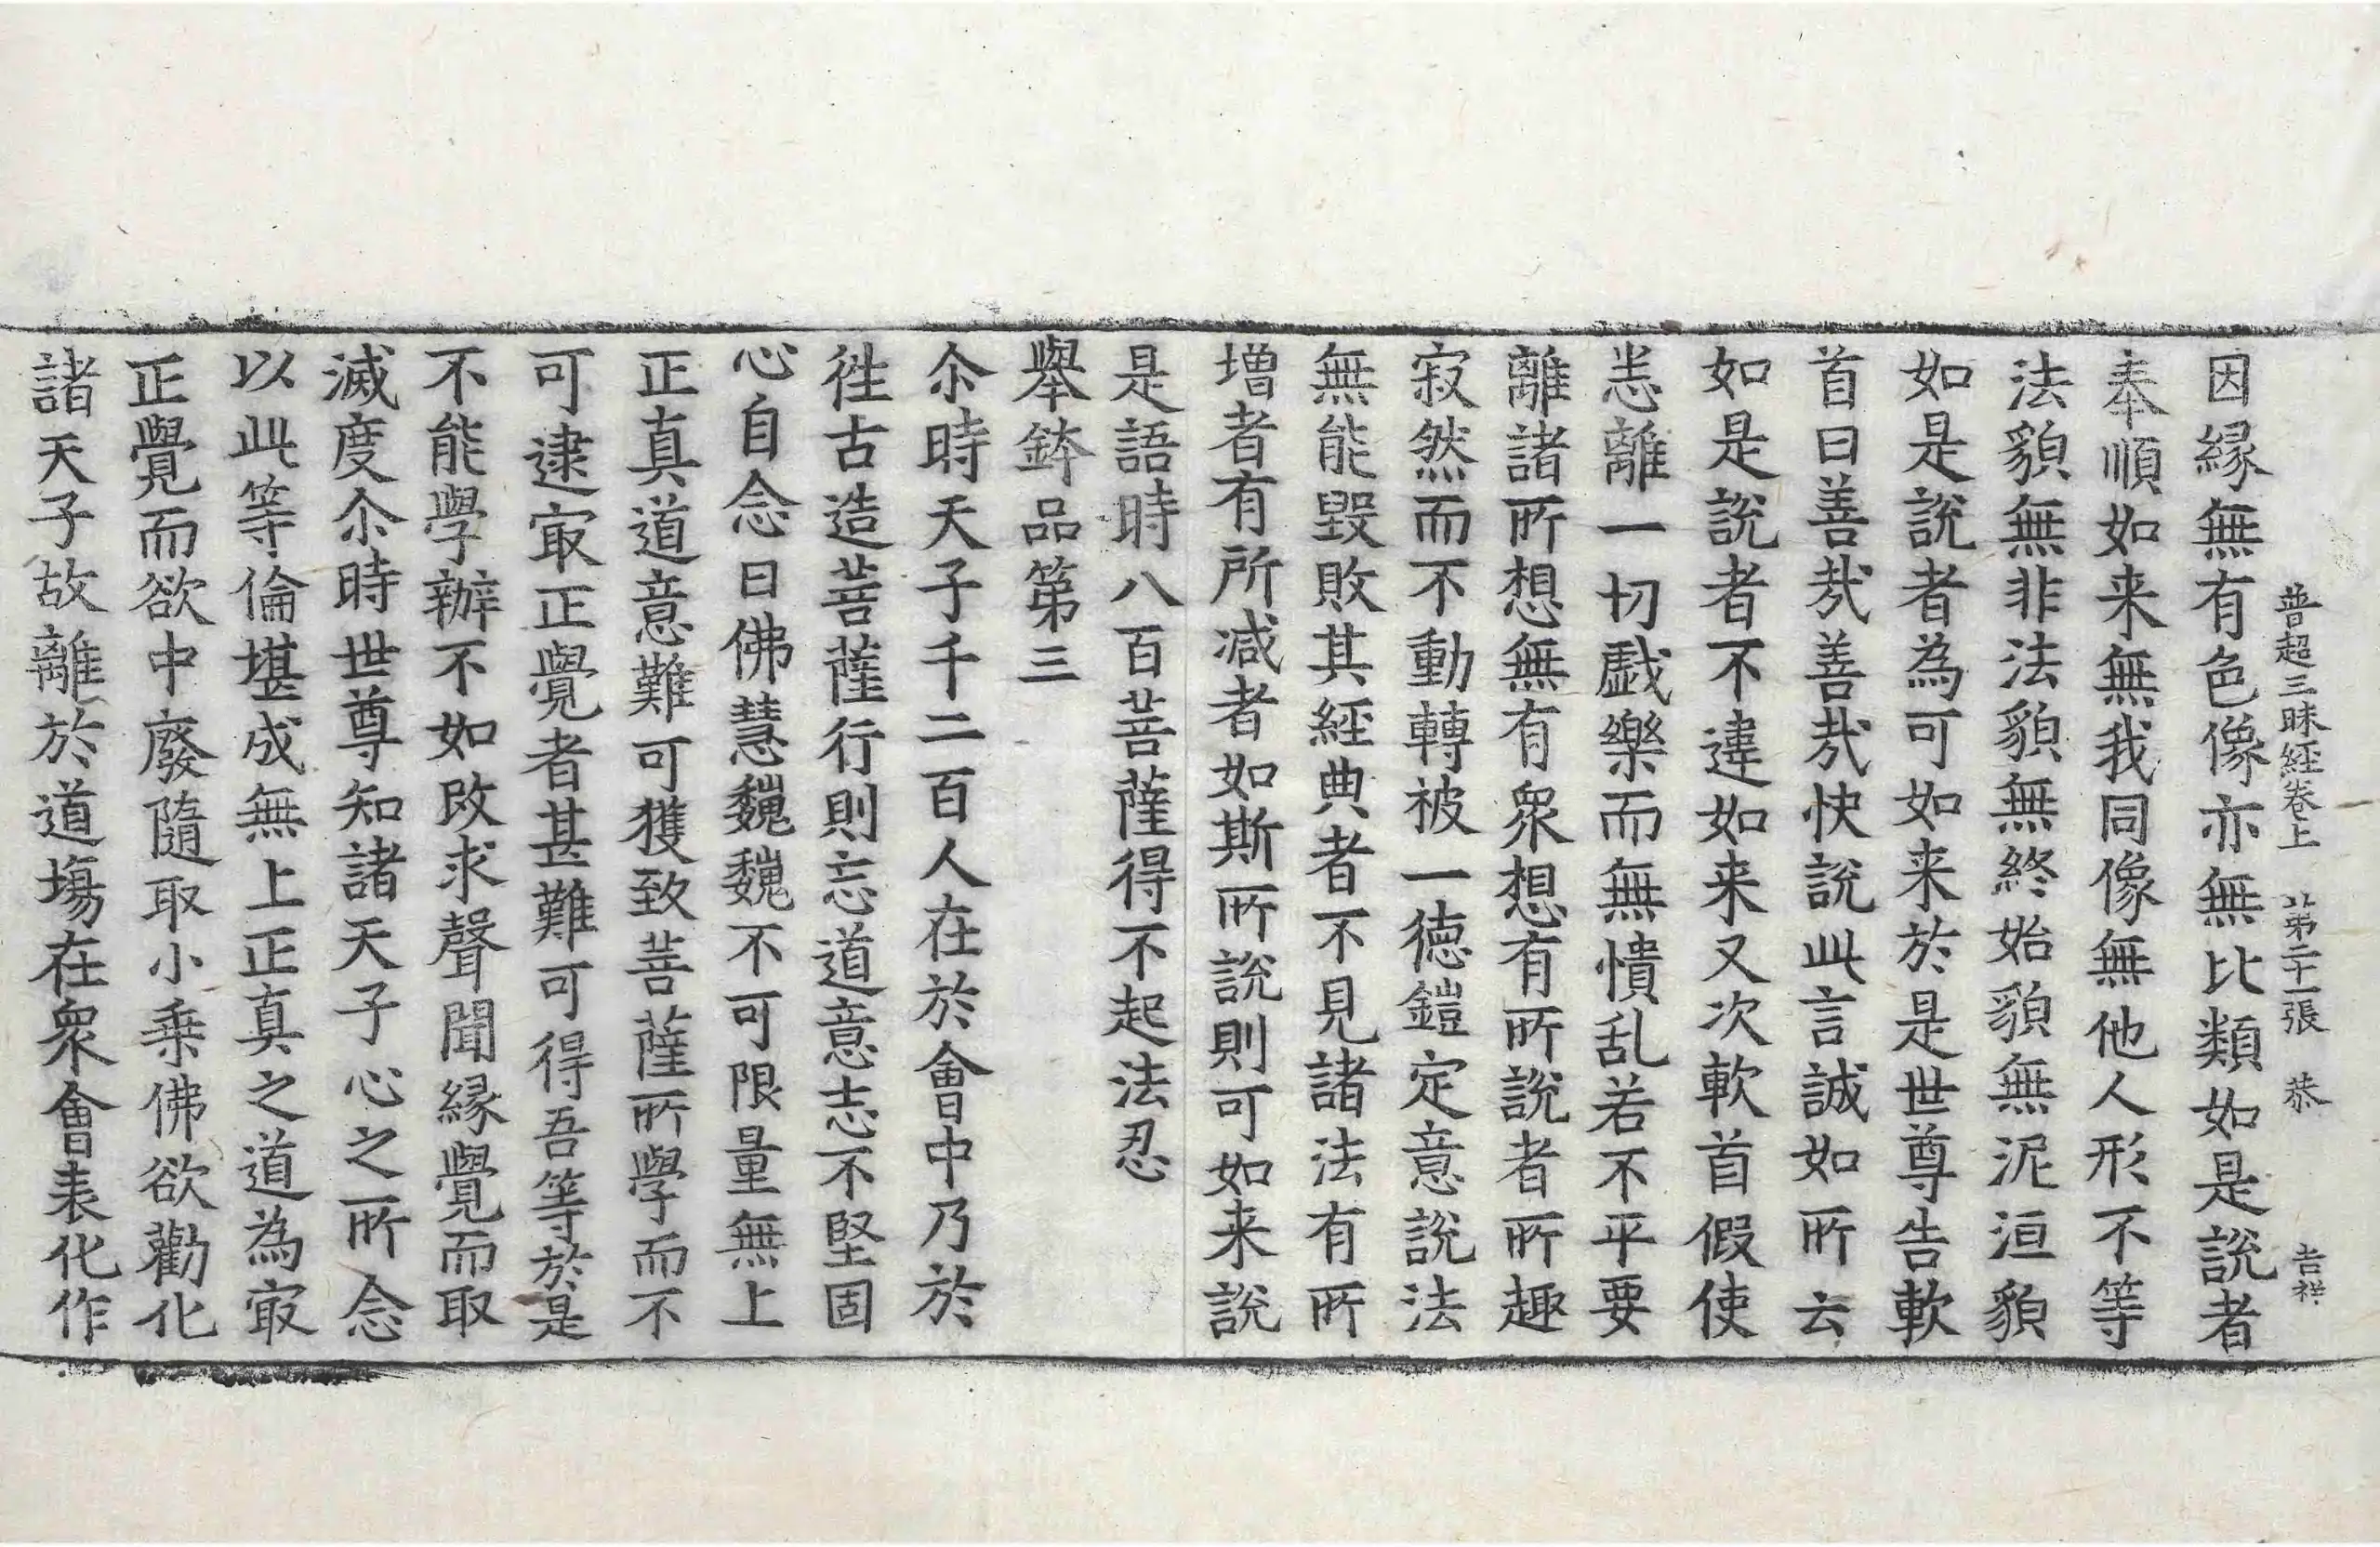 普超三昧経卷上　第二十一張　恭　吉祥
因縁無有色像亦無比類如是說者
奉順如来無我同像無他人形不等
法䫉無非法䫉無終始䫉無泥洹䫉
如是說者為可如来於是世尊告軟
首曰善㢤善㢤快說此言誠如所云
如是說者不違如来又次軟首假使
恙離一切戱樂而無憒乱若不平要
離諸所想無有衆想有所說者所趣
寂然而不動轉被一徳鎧定意說法
無能毀敗其経典者不見諸法有所
增者有所減者如斯所說則可如来說
是語時八百菩薩得不起法忍
舉鉢品第三
尒時天子千二百人在於會中乃於
徃古造菩薩行則忘道意志不堅固
心自念曰佛慧巍巍不可限量無上
正真道意難可獲致菩薩所學而不
可逮㝡正覺者甚難可得吾等於是
不能學辦不如改求聲聞緣覺而取
滅度尒時世尊知諸天子心之所念
以此等倫堪成無上正真之道為㝡
正覺而欲中廢隨取小乗佛欲勸化
諸天子故離於道場在衆會表化作